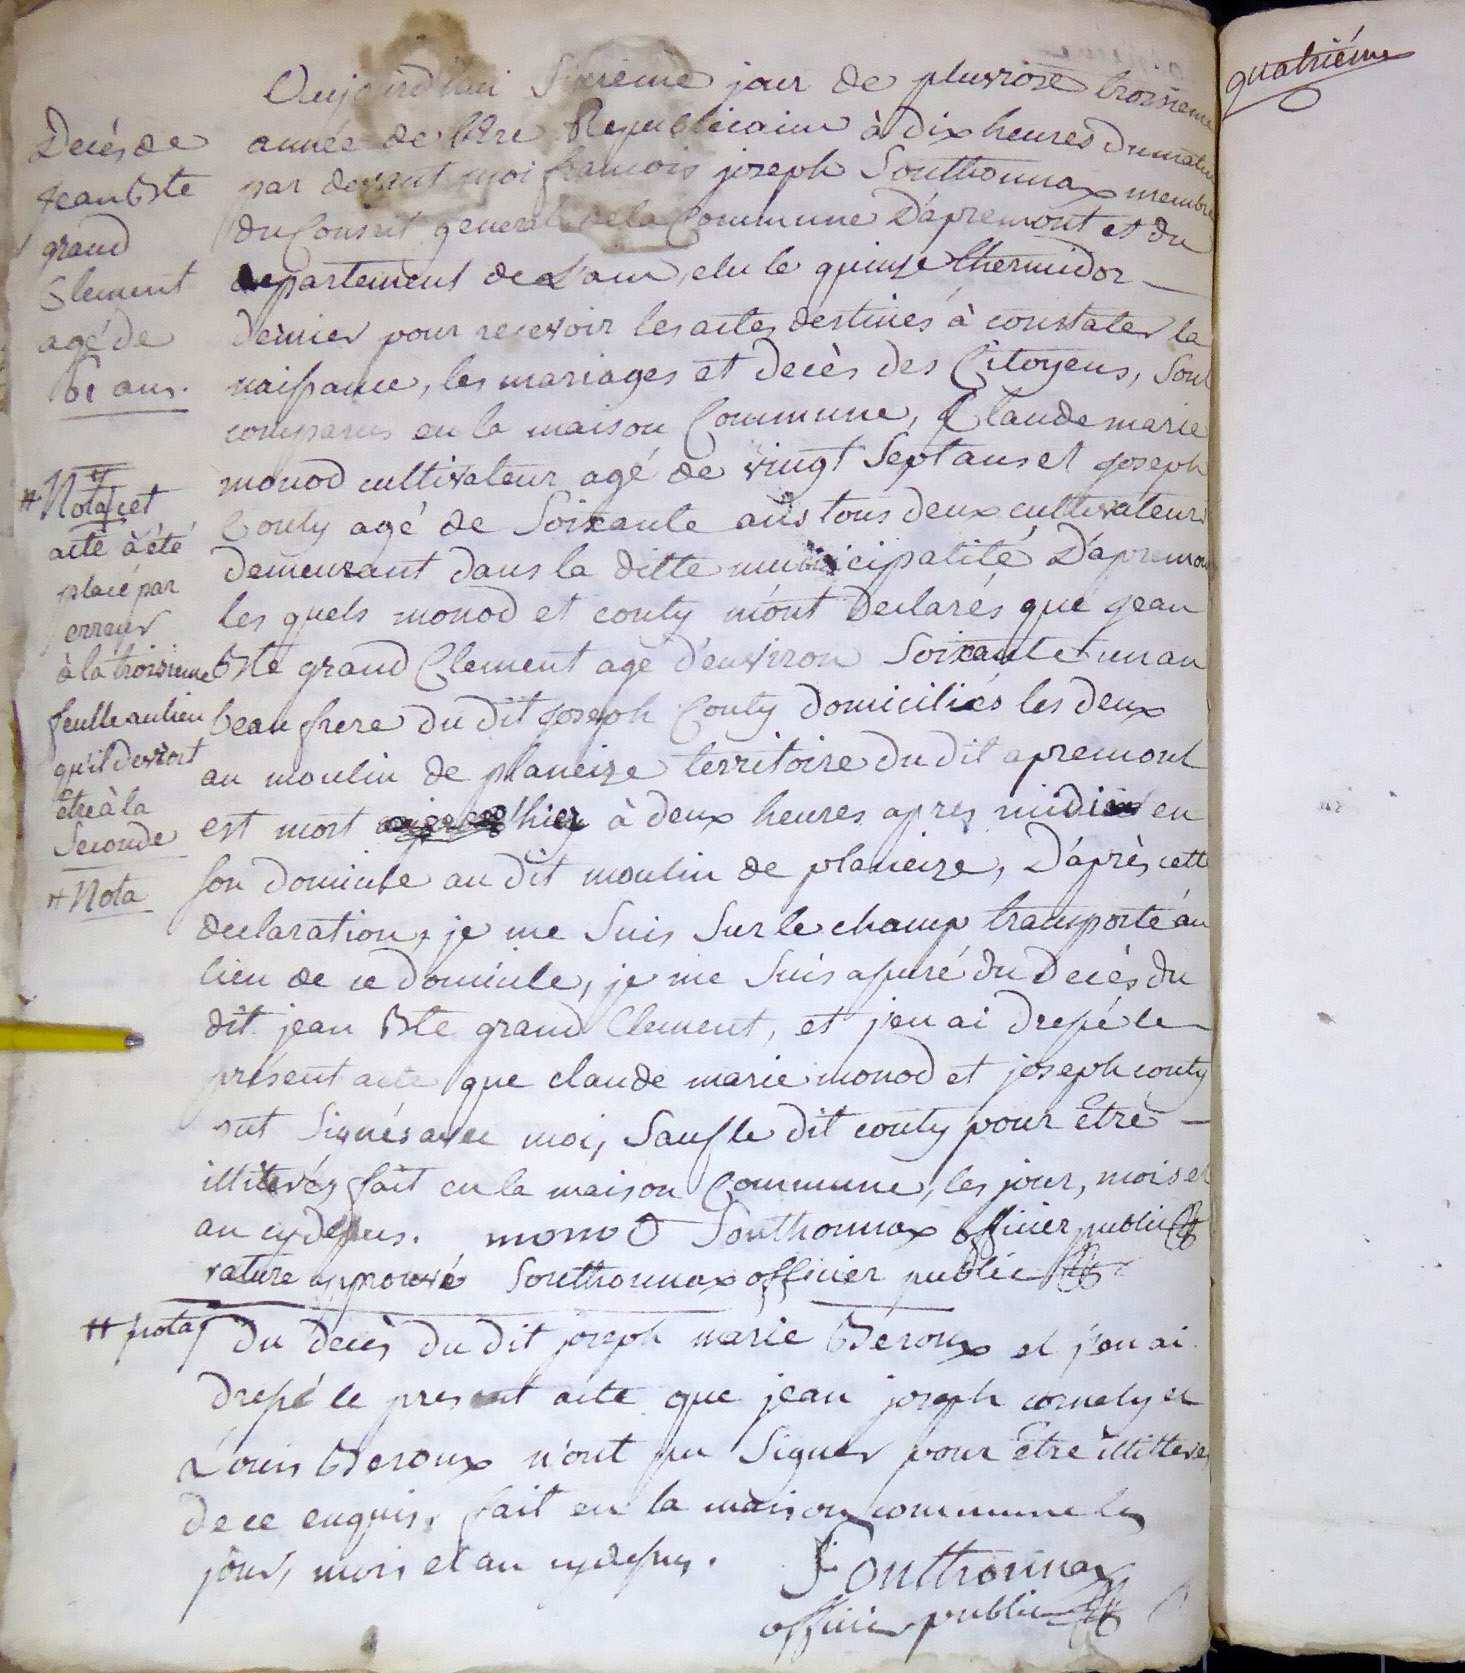 quatriéme
Decés de
Jean Bte
grand
Clement
agé de
61 ans.
# Nota cet
acte à été
placé par
erreur
à la troisieme
feulle au lieu
qu'il devroit
Etre à la
Seconde
# Nota
Aujourd'hui Sixieme jour de pluviose troisieme
année de l'Ere Republicaine à dix heures du matin
par devant moi francois joseph Southonnax membre
du Conseil general de la Commune D'apremont et du
departement de L'ain, elu le quinze thermidor
dernier pour recevoir les actes destinés à constater la
naissance, les mariages et decès des Citoyens, Sont
comparus en la maison Commune, Claude marie
monod cultivateur agé de vingt Sept ans et joseph
Couty agé de Soixante ans tous deux cultivateurs
demeurant dans la ditte municipalité D'apremont
les quels monod et couty m'ont Declarés que jean
Bte grand Clement agé d'environ Soixante un an
beau frere du dit joseph Couty domiciliés les deux
au moulin de planeize territoire du dit apremont
est mort hier à deux heures apres midi en
son domicile au dit moulin de planeize, D'après cette
declaration, je me Suis Sur le champ transporté au
lieu de ce domicile, je me Suis assuré du Decès du
dit jean Bte grand Clement, et j'en ai dressé le
présent acte que claude marie monod et joseph couty
ont Signés avec moi, Sauf le dit couty pour Etre
illiterés fait en la maison Commune, les jour, mois et
an cydessus. monod Southonnax officier public
rature approuvé Southonnax officier public
# nota du decès du dit joseph marie Beroux et j'en ai
dressé le present acte que jean joseph cornely et
Louis Beroux n'ont pu Signer pour Etre illitterés
de ce enquis, fait en la maison commune les
jour, mois et an cydessus. Southonnax
officier public